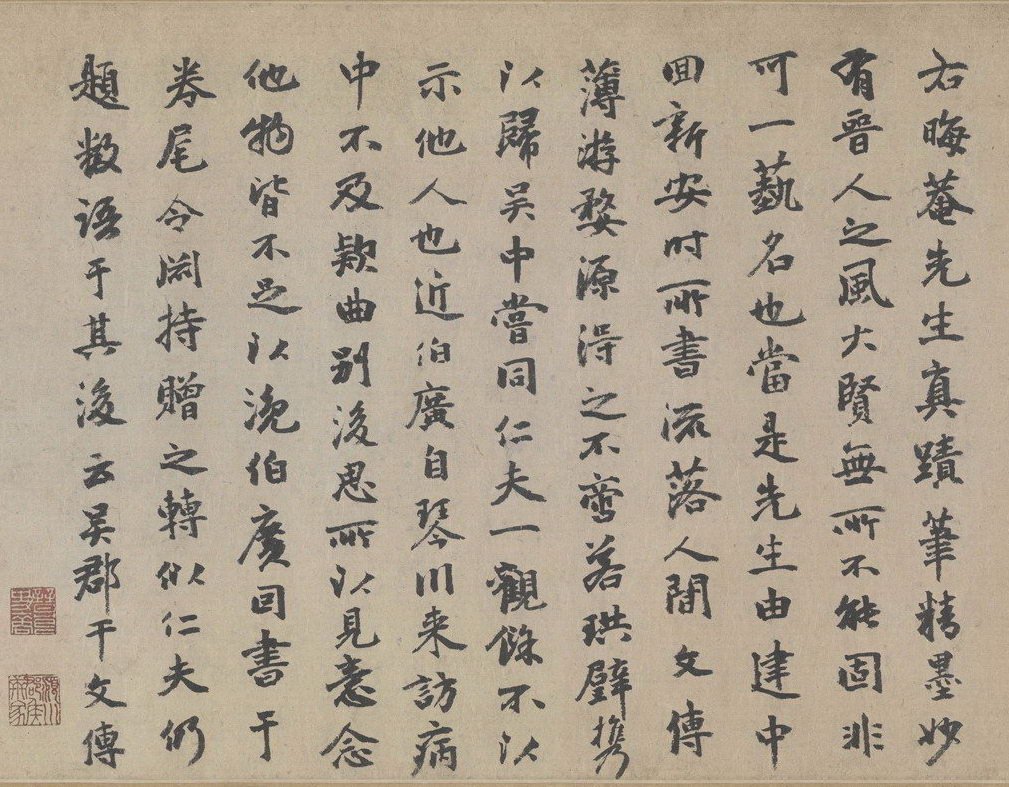 右晦菴先生真蹟筆精墨妙
有晉人之風大賢無所不能固非
可一藝名也當是先生由建中
回新安時所書流落人間文傳
薄游婺源得之不啻若珙璧携
以歸吴中嘗同仁夫一觀餘不以
示他人也近伯廣自琴川来訪病
中不及欵曲别後思所以見意念
他物皆不足以浼伯廣回書于
卷尾令閎持贈之轉似仁夫仍
題數語于其後云吴郡干文傳